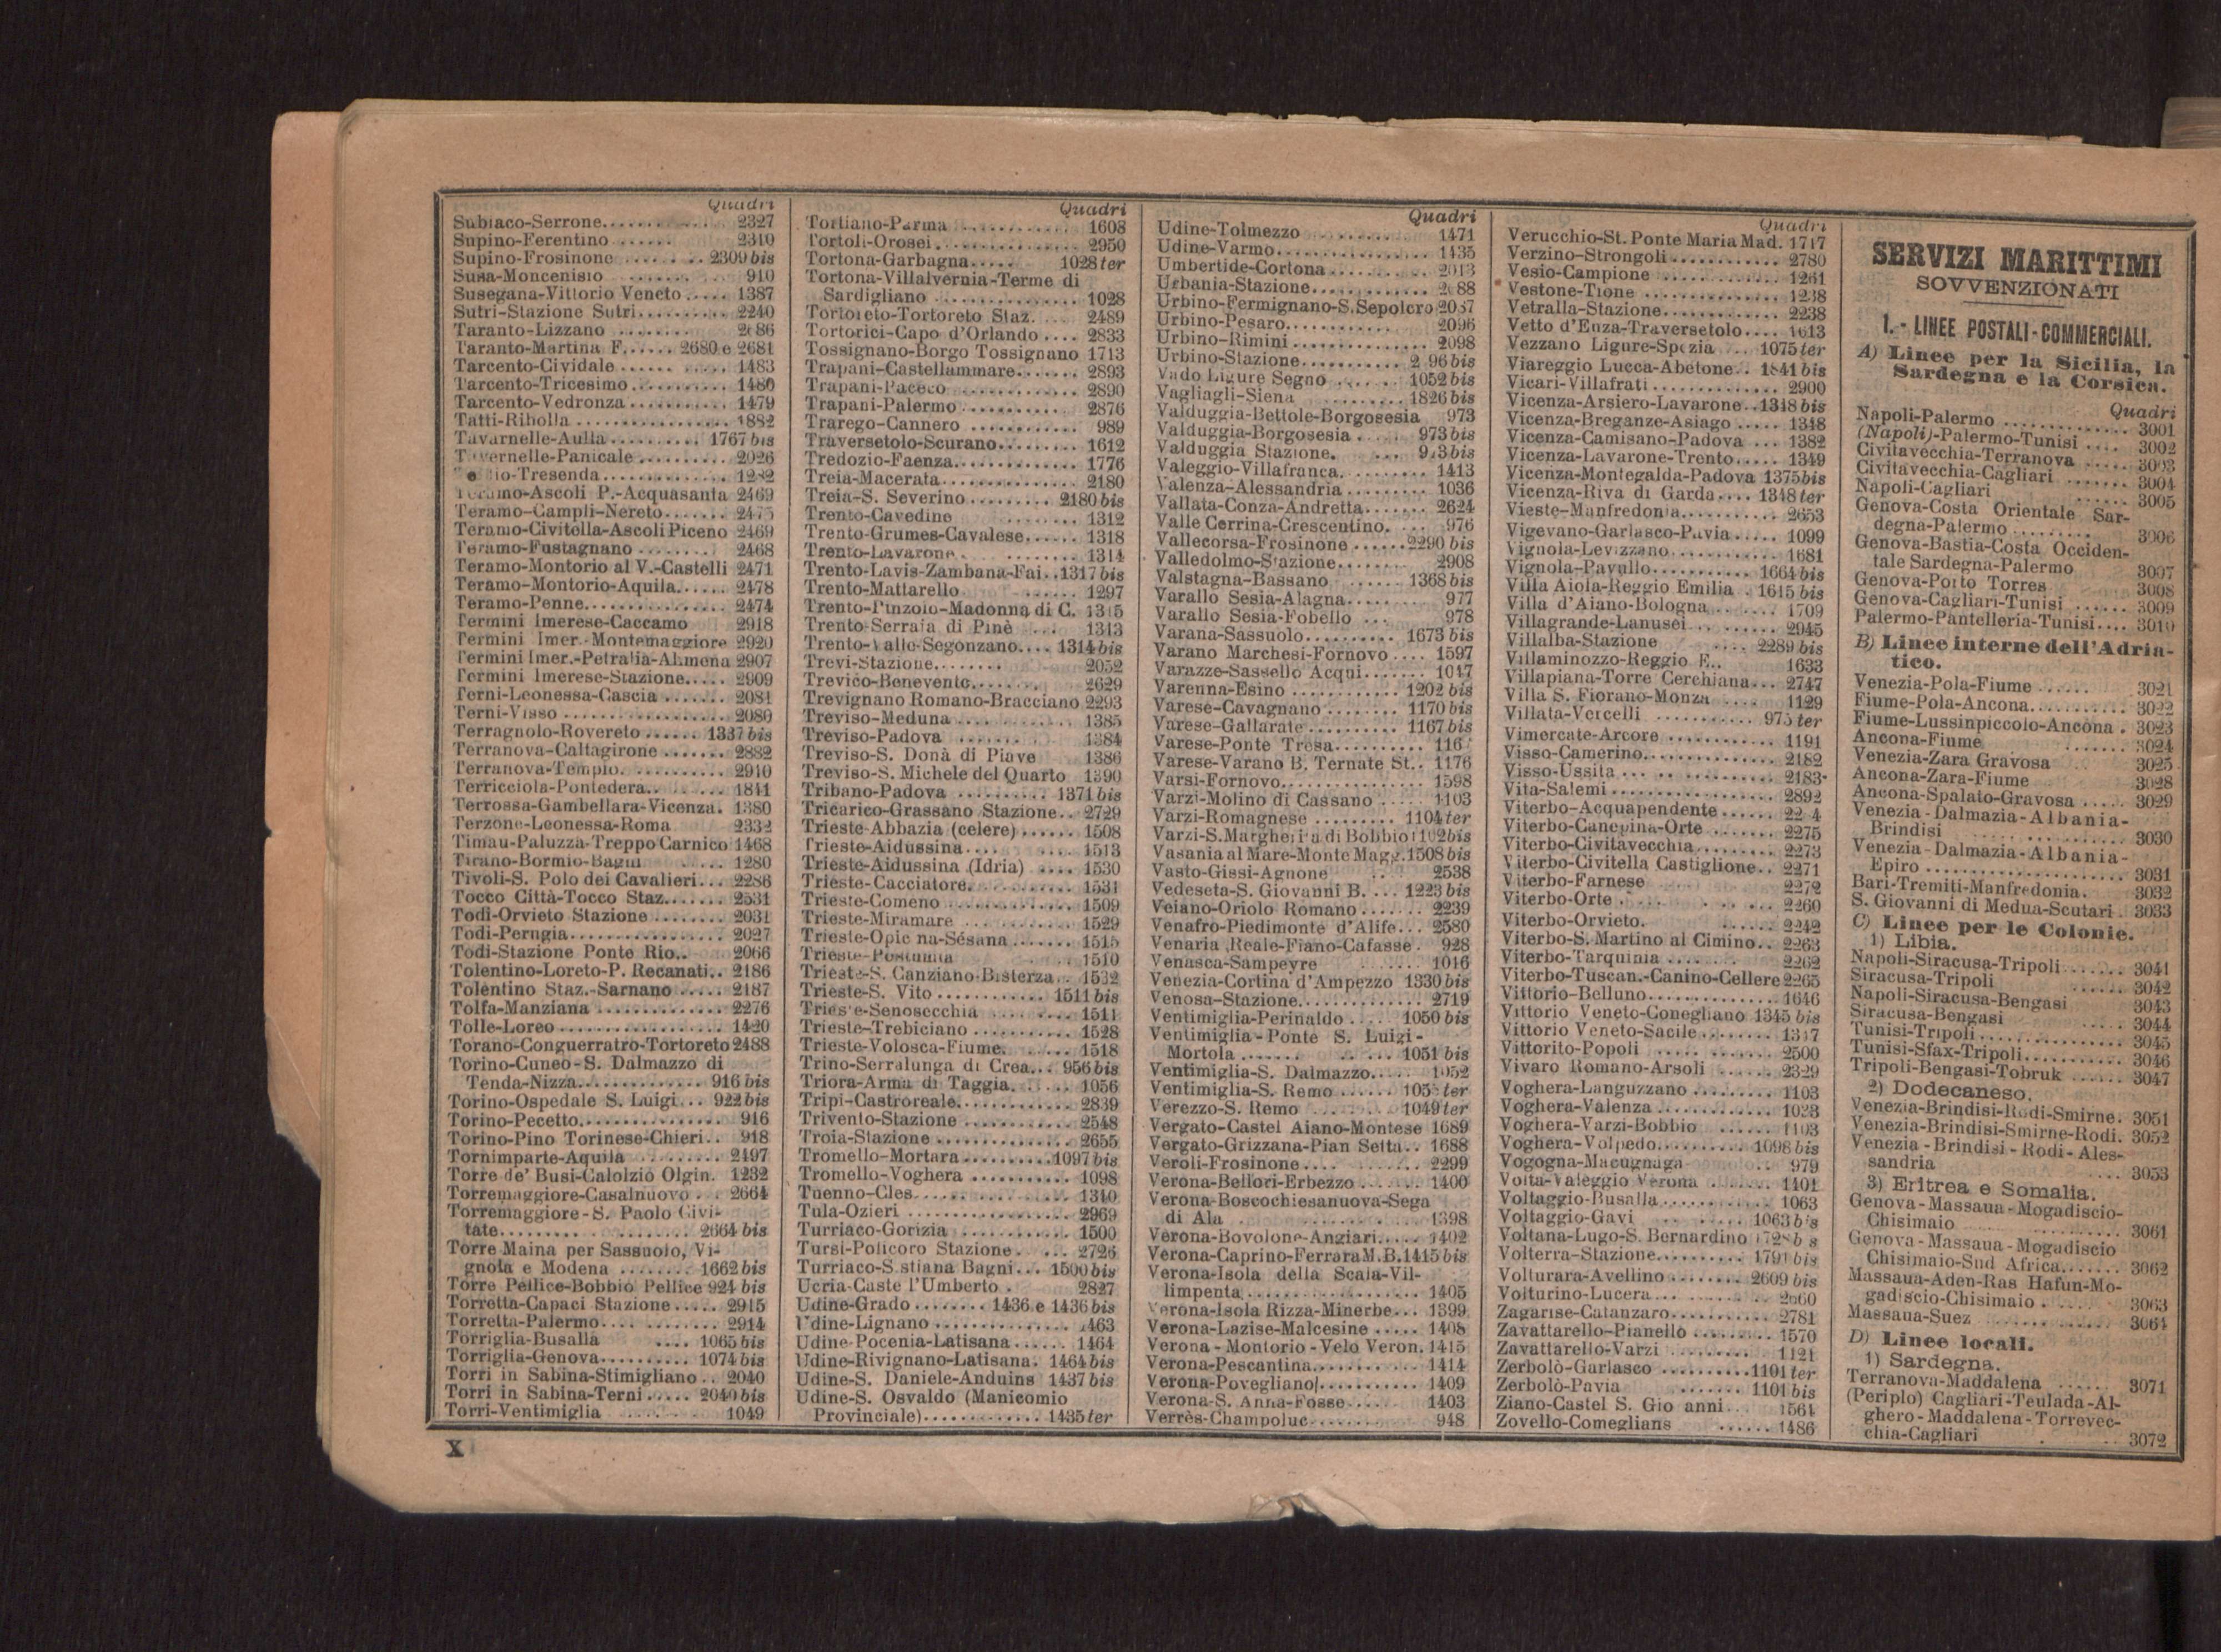 Quadri
Subiaco-Serrone............ 2327
Supino-Ferentino ...... 2310
Supino-Frosinone ........ 2309 bis
Susa-Moncenisio ....... 910
Susegana-Vittorio Veneto..... 1387
Sutri-Stazione Sutri.......... 2240
Taranto-Lizzano ........
Taranto-Martina F...... 2680 e 2681
Tarcento-Cividale ...... 1483
Tarcento-Tricesimo.......... 1480
Tarcento-Vedronza........... 1479
Tatti-Ribolla ................ 1882
Tavarnelle-Aulla.......... 1767 bis
Tavernelle-Panicale .......... 2026
-Tresenda..............
Teramo-Ascoli P.-Acquasanta 2469
Teramo-Campli-Nereto....... 2475
Teramo-Civitella-Ascoli Piceno 2469
Teramo-Fustagnano ........ 2468
Teramo-Montorio al V.-Castelli 2471
Teramo-Montorio-Aquila...... 2478
Teramo-Penne............... 2474
Termini Imerese-Caccamo 2918
Termini Imer.-Montemaggiore 2920
Termini Imer.-Petralia-Alimena 2907
Termini Imerese-Stazione..... 2909
Terni-Leonessa-Cascia ....... 2081
Terni-Visso ................. 2080
Terragnolo-Rovereto ...... 1337 bis
Terranova-Caltagirone ....... 2882
Terranova-Tempio. .......... 2910
Terricciola-Pontedera.. ..... 1811
Terrossa-Gambellara-Vicenza. 1380
Terzone-Leonessa-Roma 2332
Timau-Paluzza-Treppo Carnico 1468
Tirano-Bormio-Bagni .... 1280
Tivoli-S. Polo dei Cavalieri... 2286
Tocco Città-Tocco Staz....... 2531
Todi-Orvieto Stazione ........ 2031
Todi-Perugia................. 2027
Todi-Stazione Ponte Rio.. 2066
Tolentino-Loreto-P. Recanati.. 2186
Tolentino Staz.-Sarnano ..... 2187
Tolfa-Manziana ............. 2276
Tolle-Loreo ................. 1420
Torano-Conguerratro-Tortoreto 2488
Torino-Cuneo-S. Dalmazzo di
Tenda-Nizza............. 916 bis
Torino-Ospedale S. Luigi... 922 bis
Torino-Pecetto............... 916
Torino-Pino Torinese-Chieri.. 918
Tornimparte-Aquila ......... 2497
Torre de' Busi-Calolzio Olgin. 1232
Torremaggiore-Casalnuovo . . 2664
Torremaggiore-S. Paolo Civi-
tate......... ......... 2664 bis
Torre Maina per Sassuolo, Vi-
gnola e Modena ........ 1662 bis
Torre Pellice-Bobbio Pellice 924 bis
Torretta-Capaci Stazione..... 2915
Torretta-Palermo.... ........ 2914
Torriglia-Busalla .... 1065 bis
Torriglia-Genova.......... 1074 bis
Torri in Sabina-Stimigliano .. 2040
Torri in Sabina-Terni ..... 2040 bis
Torri-Ventimiglia ........ 1049
Quadri
Tortiano-Parma ............. 1608
Tortolì-Orosei................ 2950
Tortona-Garbagna..... 1028 ter
Tortona-Villalvernia-Terme di
Sardigliano ............... 1028
Tortoreto-Tortoreto Staz. 2489
Tortorici-Capo d'Orlando .... 2833
Tossignano-Borgo Tossignano 1713
Trapani-Castellammare....... 2893
Trapani-Paceco .......... 2890
Trapani-Palermo ........... 2876
Trarego-Cannero ............ 989
Traversetolo-Scurano......... 1612
Tredozio-Faenza............. 1776
Treia-Macerata.............. 2180
Treia-S. Severino ......... 2180 bis
Trento-Cavedine ........ 1312
Trento-Grumes-Cavalese...... 1318
Trento-Lavarone. ........ 1314
Trento-Lavis-Zambana-Fai..1317 bis
Trento-Mattarello ...... 1297
Trento-Pinzolo-Madonna di C. 1315
Trento-Serraia di Pinè ... 1313
Trento-Valle-Segonzano.... 1314 bis
Trevi-Stazione....... 2052
Trevico-Benevento........ 2629
Trevignano Romano-Bracciano 2293
Treviso-Meduna ............. 1385
Treviso-Padova ....... 1384
Treviso-S. Donà di Piave 1386
Treviso-S. Michele del Quarto 1390
Tribano-Padova .......... 1371 bis
Tricarico-Grassano Stazione.. 2729
Trieste-Abbazia (celere)...... 1508
Trieste-Aidussina.... .... 1513
Trieste-Aidussina (Idria) .... 1530
Trieste-Cacciatore........... 1531
Trieste-Comeno ............. 1509
Trieste-Miramare ........... 1529
Trieste-Opic na-Sésana ....... 1515
Trieste-Postumia 1510
Trieste-S. Canziano-Bisterza.. 1532
Trieste-S. Vito ........... 1511 bis
Trieste-Senosecchia ........ 1511
Trieste-Trebiciano ........... 1528
Trieste-Volosca-Fiume. ..... 1518
Trino-Serralunga di Crea... 956 bis
Triora-Arma di Taggia. ..... 1056
Tripi-Castroreale............ 2839
Trivento-Stazione ........... 2548
Troia-Stazione .............. 2655
Tromello-Mortara ..........1097 bis
Tromello-Voghera ........... 1098
Tuenno-Cles................ 1310
Tula-Ozieri ................. 2969
Turriaco-Gorizia ............ 1500
Tursi-Policoro Stazione. ... 2726
Turriaco-S stiana Bagni... 1500 bis
Ucria-Caste l'Umberto . 2827
Udine-Grado ........ 1436 e 1436 bis
Udine-Lignano .............. 1463
Udine-Pocenia-Latisana...... 1464
Udine-Rivignano-Latisana. 1464 bis
Udine-S. Daniele-Anduins 1437 bis
Udine-S. Osvaldo (Manicomio
Provinciale)............. 1435 ter
Quadri
Udine-Tolmezzo ........ 1471
Udine-Varmo................ 1435
Umbertide-Cortona.......... 2013
Urbania-Stazione.............
Urbino-Fermignano-S.Sepolcro 2087
Urbino-Pesaro............ 2096
Urbino-Rimini .............. 2098
Urbino-Stazione........... 2 96 bis
Vado Ligure Segno ...... 1052 bis
Vagliagli-Siena ......... 1826 bis
Valduggia-Bettole-Borgosesia 973
Valduggia-Borgosesia ..... 973 bis
Valduggia Stazione. ... 973 bis
Valeggio-Villafranca......... 1413
Valenza-Alessandria ......... 1036
Vallata-Conza-Andretta....... 2624
Valle Cerrina-Crescentino. ... 976
Vallecorsa-Frosinone ......2290 bis
Valledolmo-Stazione........ 2908
Valstagna-Bassano ...... 1368 bis
Varallo Sesia-Alagna........ 977
Varallo Sesia-Fobello ... 978
Varana-Sassuolo.......... 1673 bis
Varano Marchesi-Fornovo .... 1597
Varazze-Sassello Acqui....... 1047
Varenna-Esino ............ 1202 bis
Varese-Cavagnano ......... 1170 bis
Varese-Gallarate .......... 1167 bis
Varese-Ponte Tresa..........
Varese-Varano B. Ternate St.. 1176
Varsi-Fornovo............... 1598
Varzi-Molino di Cassano .... 1103
Varzi-Romagnese ......... 1104 ter
Varzi-S.Margherita di Bobbio 1102bis
Vasania al Mare-Monte Magg.1508 bis
Vasto-Gissi-Agnone .. 2538
Vedeseta-S. Giovanni B. ... 1223 bis
Veiano-Oriolo Romano....... 2239
Venafro-Piedimonte d'Alife... 2580
Venaria Reale-Fiano-Cafasse. 928
Venasca-Sampeyre ....... 1016
Venezia-Cortina d'Ampezzo 1330 bis
Venosa-Stazione.............. 2719
Ventimiglia-Perinaldo ..... 1050 bis
Ventimiglia-Ponte S. Luigi-
Mortola ....... ...... 1051 bis
Ventimiglia-S. Dalmazzo..... 1052
Ventimiglia-S. Remo ...... ter
Verezzo-S. Remo ....... 1049 ter
Vergato-Castel Aiano-Montese 1689
Vergato-Grizzana-Pian Setta.. 1688
Veroli-Frosinone.... ........ 2299
Verona-Bellori-Erbezzo ...... 1400
Verona-Boscochiesanuova-Sega
di Ala . .......... 1398
Verona-Bovolone-Angiari..... 1402
Verona-Caprino-Ferrara M.B.1415 bis
Verona-Isola della Scala-Vil-
limpenta.................. 1405
Verona-Isola Rizza-Minerbe... 1399
Verona-Lazise-Malcesine ..... 1408
Verona-Montorio-Velo Veron. 1415
Verona-Pescantina............ 1414
Verona-Povegliano........... 1409
Verona-S. Anna-Fosse..... 1403
Verrès-Champoluc........ 948
Quadri
Verucchio-St. Ponte Maria Mad. 1717
Verzino-Strongoli............ 2780
Vesio-Campione ............ 1261
Vestone-Tione .............. 1238
Vetralla-Stazione............. 2238
Vetto d'Enza-Traversetolo.... 1613
Vezzano Ligure-Spezia ... 1075 ter
Viareggio Lucca-Abetone.. 1841 bis
Vicari-Villafrati.............. 2900
Vicenza-Arsiero-Lavarone..1348 bis
Vicenza-Breganze-Asiago ..... 1348
Vicenza-Camisano-Padova ... 1382
Vicenza-Lavarone-Trento..... 1349
Vicenza-Montegalda-Padova 1375bis
Vicenza-Riva di Garda.... 1348 ter
Vieste-Manfredonia.......... 2653
Vigevano-Garlasco-Pavia ..... 1099
Vignola-Levizzano............ 1681
Vignola-Pavullo........... 1664 bis
Villa Aiola-Reggio Emilia . 1615 bis
Villa d'Aiano-Bologna ....... 1709
Villagrande-Lanusei.. ....... 2945
Villalba-Stazione .... 2289 bis
Villaminozzo-Reggio E.. 1633
Villapiana-Torre Cerchiana... 2747
Villa S. Fiorano-Monza .... 1129
Villata-Vercelli .......... 975 ter
Vimercate-Arcore ............ 1191
Visso-Camerino.............. 2182
Visso-Ussita ... .. ........... 2183
Vita-Salemi .................. 2892
Viterbo-Acquapendente ......
Viterbo-Canepina-Orte ....... 2275
Viterbo-Civitavecchia......... 2273
Viterbo-Civitella Castiglione.. 2271
Viterbo-Farnese 2272
Viterbo-Orte . ... .. .. ... 2260
Viterbo-Orvieto. ...... 2242
Viterbo-S. Martino al Cimino.. 2263
Viterbo-Tarquinia ........ 2262
Viterbo-Tuscan.-Canino-Cellere 2265
Vittorio-Belluno.............. 1646
Vittorio Veneto-Conegliano 1345 bis
Vittorio Veneto-Sacile........ 1347
Vittorito-Popoli ..... ....... 2500
Vivaro Romano-Arsoli ...... 2329
Voghera-Languzzano ........ 1103
Voghera-Valenza ............ 1033
Voghera-Varzi-Bobbio ...... 1103
Voghera-Volpedo.......... 1098 bis
Vogogna-Macugnaga .. 979
Volta-Valeggio Verona ...... 1401
Voltaggio-Busalla............ 1063
Voltaggio-Gavi .. ..... 1063 bis
Voltana-Lugo-S. Bernardino 1728 bis
Volterra-Stazione.......... 1791 bis
Volturara-Avellino ........ 2609 bis
Volturino-Lucera... ......... 2660
Zagarise-Catanzaro........... 2781
Zavattarello-Pianello ......... 1570
Zavattarello-Varzi ......... 1121
Zerbolò-Garlasco ..........1101 ter
Zerbolò-Pavia ....... 1101 bis
Ziano-Castel S. Gio anni.. 1564
Zovello-Comeglians ...... 1486
SERVIZI MARITTIMI
SOVVENZIONATI
1.- LINEE POSTALI-COMMERCIALI.
A) Linee per la Sicilia, la
Sardegna e la Corsica.
Quadri
Napoli-Palermo ............. 3001
(Napoli)-Palermo-Tunisi .... 3002
Civitavecchia-Terranova ..... 3003
Civitavecchia-Cagliari ....... 3004
Napoli-Cagliari ...... 3005
Genova-Costa Orientale Sar-
degna-Palermo ......... 3006
Genova-Bastia-Costa Occiden-
tale Sardegna-Palermo 3007
Genova-Porto Torres 3008
Genova-Cagliari-Tunisi ...... 3009
Palermo-Pantelleria-Tunisi.... 3010
B) Linee interne dell'Adria-
tico.
Venezia-Pola-Fiume ...... 3021
Fiume-Pola-Ancona........... 3022
Fiume-Lussinpiccolo-Ancona . 3023
Ancona-Fiume ....... 3024
Venezia-Zara Gravosa 3025
Ancona-Zara-Fiume 3028
Ancona-Spalato-Gravosa ..... 3029
Venezia-Dalmazia-Albania-
Brindisi ............... 3030
Venezia-Dalmazia-Albania-
Epiro ..................... 3031
Bari-Tremiti-Manfredonia. 3032
S. Giovanni di Medua-Scutari . 3033
C) Linee per le Colonie.
1) Libia.
Napoli-Siracusa-Tripoli....... 3041
Siracusa-Tripoli ...... 3042
Napoli-Siracusa-Bengasi 3043
Siracusa-Bengasi ..... 3044
Tunisi-Tripoli............... 3045
Tunisi-Sfax-Tripoli........... 3046
Tripoli-Bengasi-Tobruk ...... 3047
2) Dodecaneso.
Venezia-Brindisi-Rodi-Smirne. 3051
Venezia-Brindisi-Smirne-Rodi. 3052
Venezia-Brindisi-Rodi-Ales-
sandria .... 3053
3) Eritrea e Somalia.
Genova-Massaua-Mogadiscio-
Chisimaio ................ 3061
Genova-Massaua-Mogadiscio
Chisimaio-Sud Africa...... 3062
Massaua-Aden-Ras Hafun-Mo-
gadiscio-Chisimaio . ..... 3063
Massaua-Suez ............. 3064
D) Linee locali.
1) Sardegna.
Terranova-Maddalena ...... 3071
(Periplo) Cagliari-Teulada-Al-
ghero-Maddalena-Torrevec-
chia-Cagliari . .. 3072
X